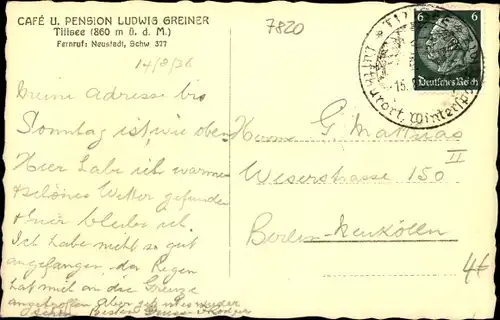 CAFÉ U. PENSION LUDWIG GREINER
Titisee (860 m ü. d. M.)
Fernruf: Neustadt, Schw 377
7820
14/8/36
Meine Adresse bis
Sonntag ist wie oben
Hier habe ich warmes
+ schönes Wetter gefunden
+ hier bleibe ich.
Ich habe nicht so gut
angefangen, der Regen
hat mich an die Grenze
angetroffen. Aber
Besten Gruss
TITISEE
Luftkurort, Wintersp
15.
6 6
Deutsches Reich
Herrn G. Matthias
II
Weserstrasse 150
Berlin Neukölln
4€